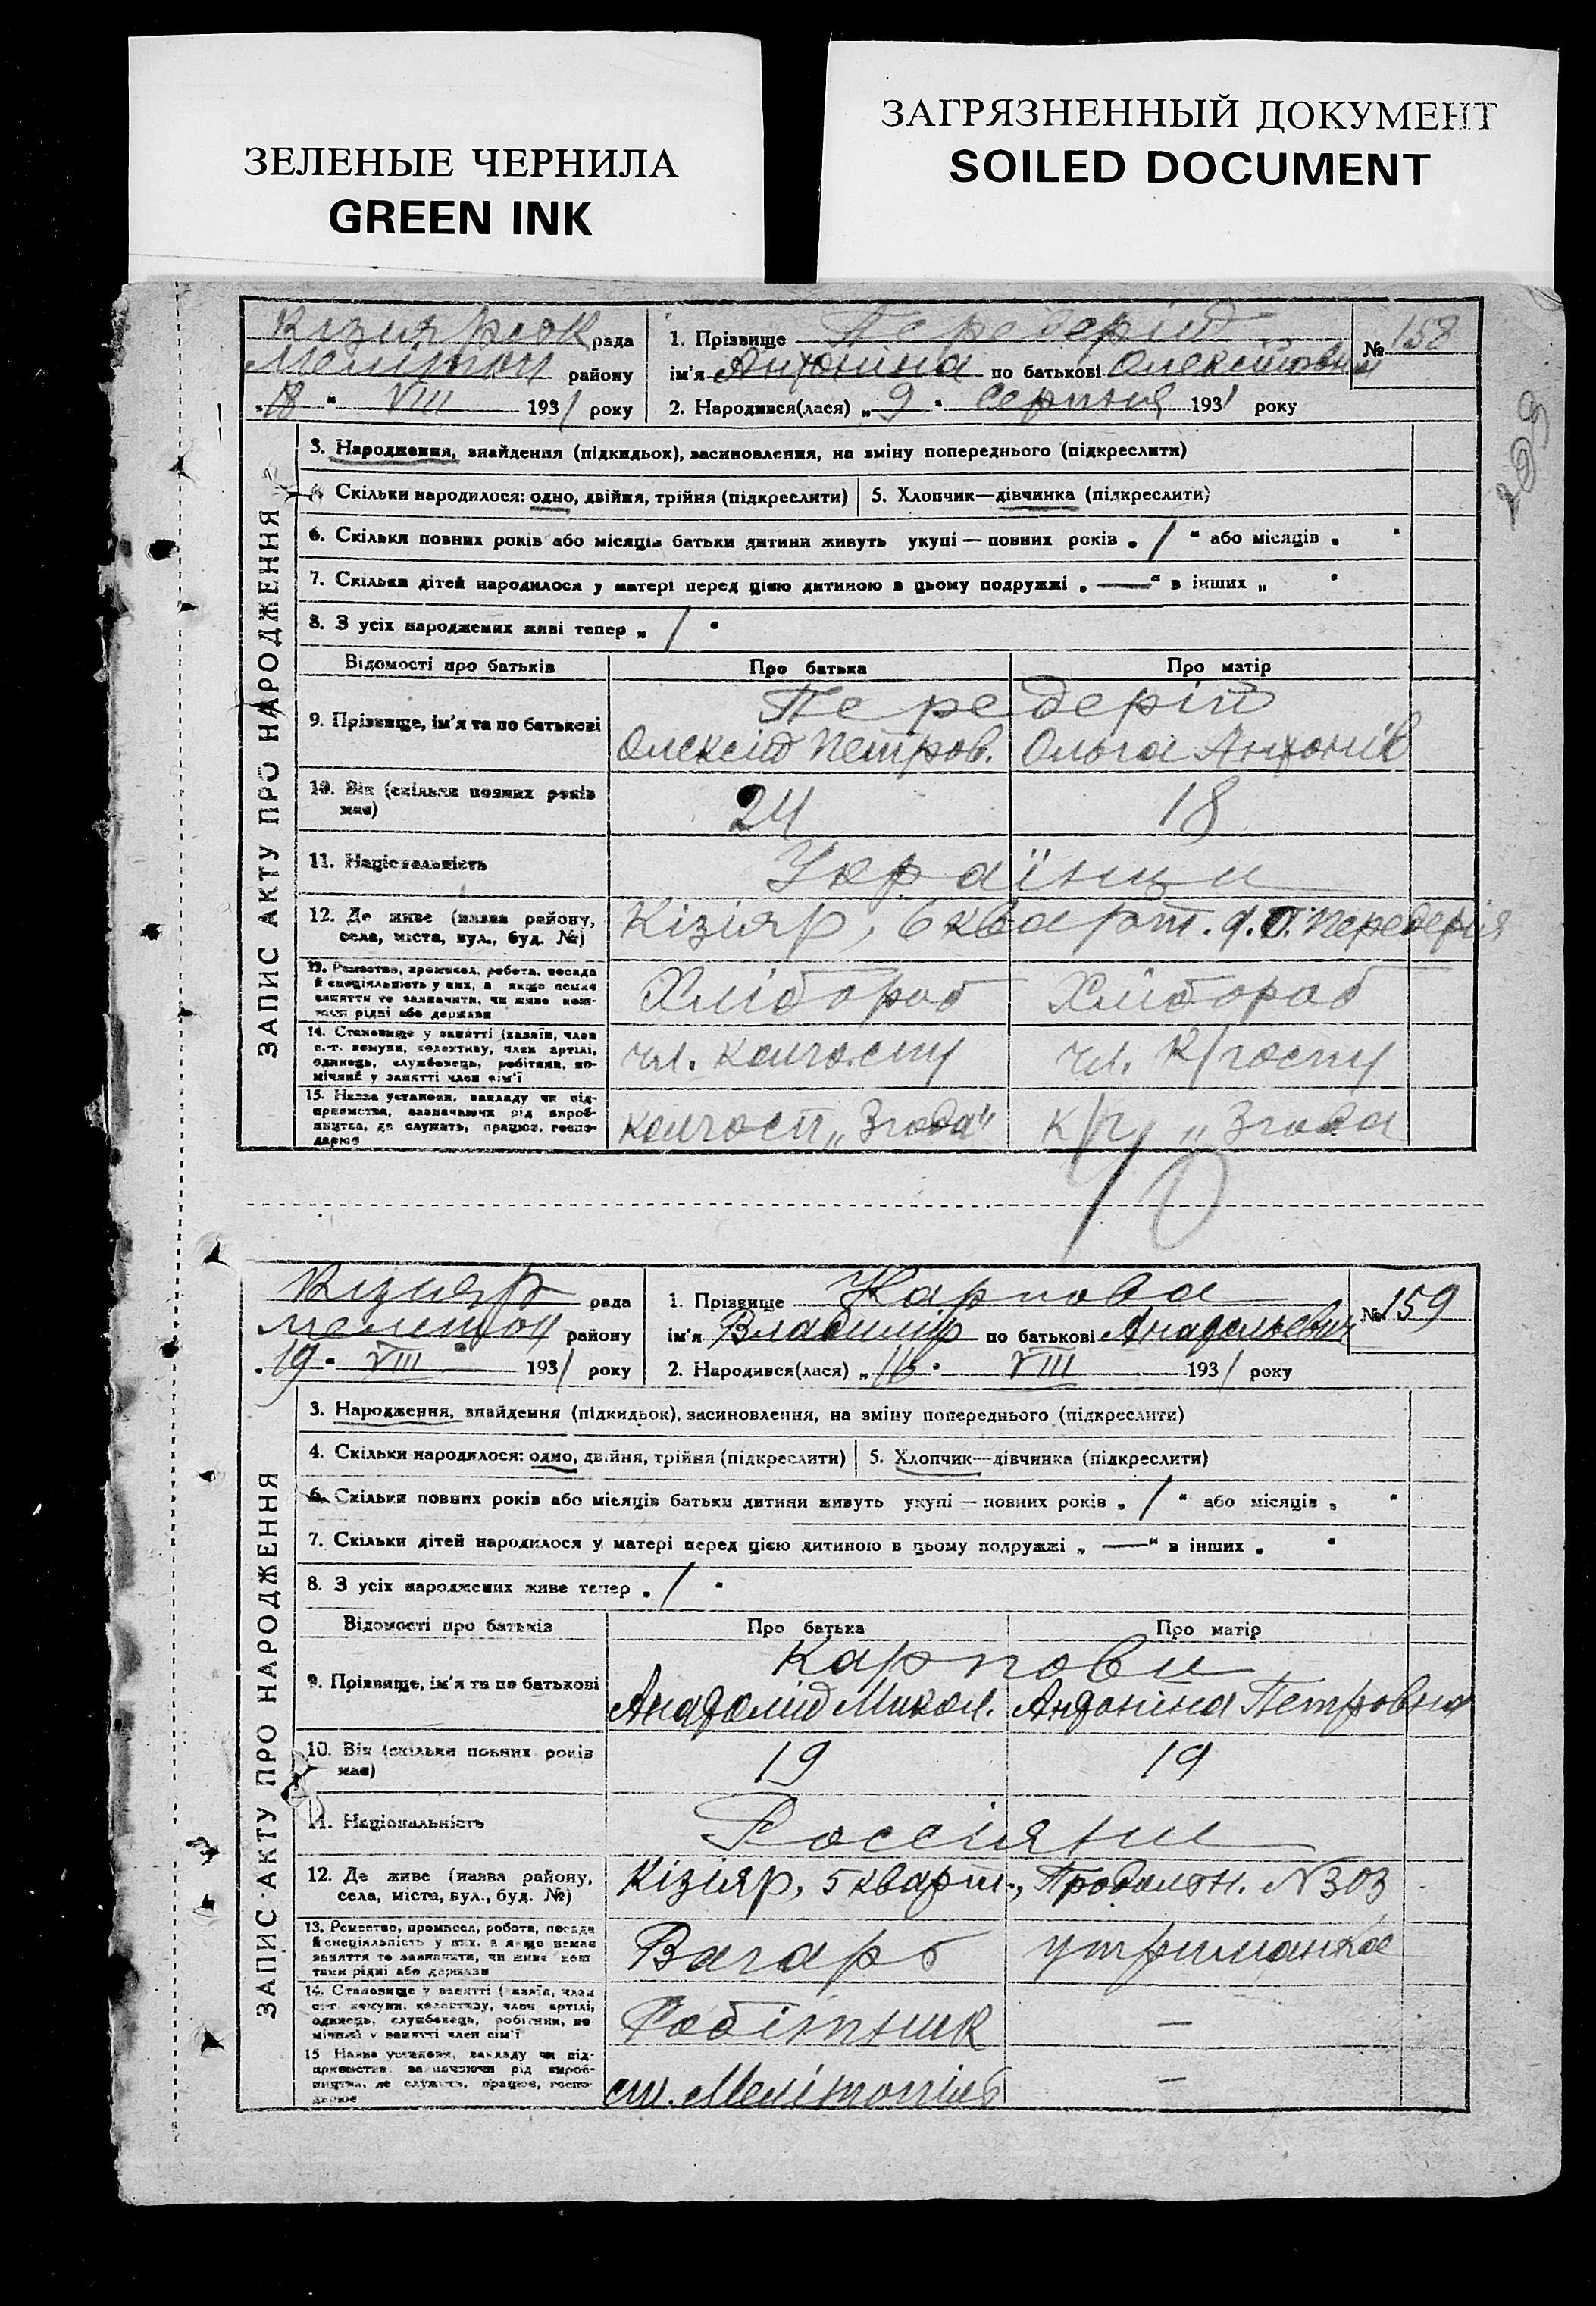 ЗЕЛЕНЫЕ ЧЕРНИЛА
GREEN INK
ЗАГРЯЗНЕННЫЙ ДОКУМЕНТ
SOILED DOCUMENT
Кізиярськ рада 1. Прізвище Передерій № 158
Мелітоп району ім'я Антоніна по батькові Олексіївни
„18" VIII 1931 року 2. Народився(лася) „9" Серпня 1931 року
ЗАПИС АКТУ ПРО НАРОДЖЕННЯ
3. Народження, знайдення (підкидьок), засиновлення, на зміну попереднього (підкреслити)
4. Скільки народилося: одно, двійня, трійня (підкреслити) 5. Хлопчик—дівчинка (підкреслити)
6. Скільки повних років або місяців батьки дитини живуть укупі — повних років „1" або місяців „ "
7. Скільки дітей народилося у матері перед цією дитиною в цьому подружжі „—" в інших „ "
8. З усіх народжених живі тепер „1"
Відомості про батьків Про батька Про матір
9. Прізвище, ім'я та по батькові Передерій
Олексій Петров. Ольга Антонів
10. Вік (скільки повних років має) 24 18
11. Національність Українци
12. Де живе (назва району, села, міста, вул., буд. №) Кізіяр, 6 кварт. д. О. Передерія
13. Ремество, промисел, робота, посада й спеціяльність у них, а якщо немає заняття то зазначити, чи живе коштами рідні або держави Хлібороб Хлібороб
14. Становище у занятті (хазяїн, член с.-г. комуни, колективу, член артілі, одинець, службовець, робітник, помічний у занятті член сім'ї чл. колгоспу чл. к/госпу
15. Назва установи, закладу чи підприємства, зазначаючи рід виробництва, де служить, працює, господарює колгосп „Згода" к/г „Згода
159
Кізияр рада 1. Прізвище Карпова №
Мелитоп району ім'я Владимір по батькові Анатольевич
„19" VIII 1931 року 2. Народився(лася) „16" VIII 1931 року
ЗАПИС АКТУ ПРО НАРОДЖЕННЯ
3. Народження, знайдення (підкидьок), засиновлення, на зміну попереднього (підкреслити)
4. Скільки народилося: одно, двійня, трійня (підкреслити) 5. Хлопчик—дівчинка (підкреслити)
6. Скільки повних років або місяців батьки дитини живуть укупі — повних років „1" або місяців „ "
7. Скільки дітей народилося у матері перед цією дитиною в цьому подружжі „—" в інших „ "
8. З усіх народжених живе тепер „1"
Відомості про батьків Про батька Про матір
9. Прізвище, ім'я та по батькові Карпови
Анатолій Микол. Антоніна Петровна
10. Вік (скільки повних років має) 19 19
11. Національність Россіяни
12. Де живе (назва району, села, міста, вул., буд. №) Кізіяр, 5 кварт., N303
13. Ремество, промисел, робота, посада й спеціяльність у них, а якщо немає заняття то зазначити, чи живе коштами рідні або держави Вагарь утриманка
14. Становище у занятті (хазяїн, член с.-г. комуни, колективу, член артілі, одинець, службовець, робітник, помічний у занятті член сім'ї Робітник —
15. Назва установи, закладу чи підприємства, зазначаючи рід виробництва, де служить, працює, господарює ст. Мелітопіль —